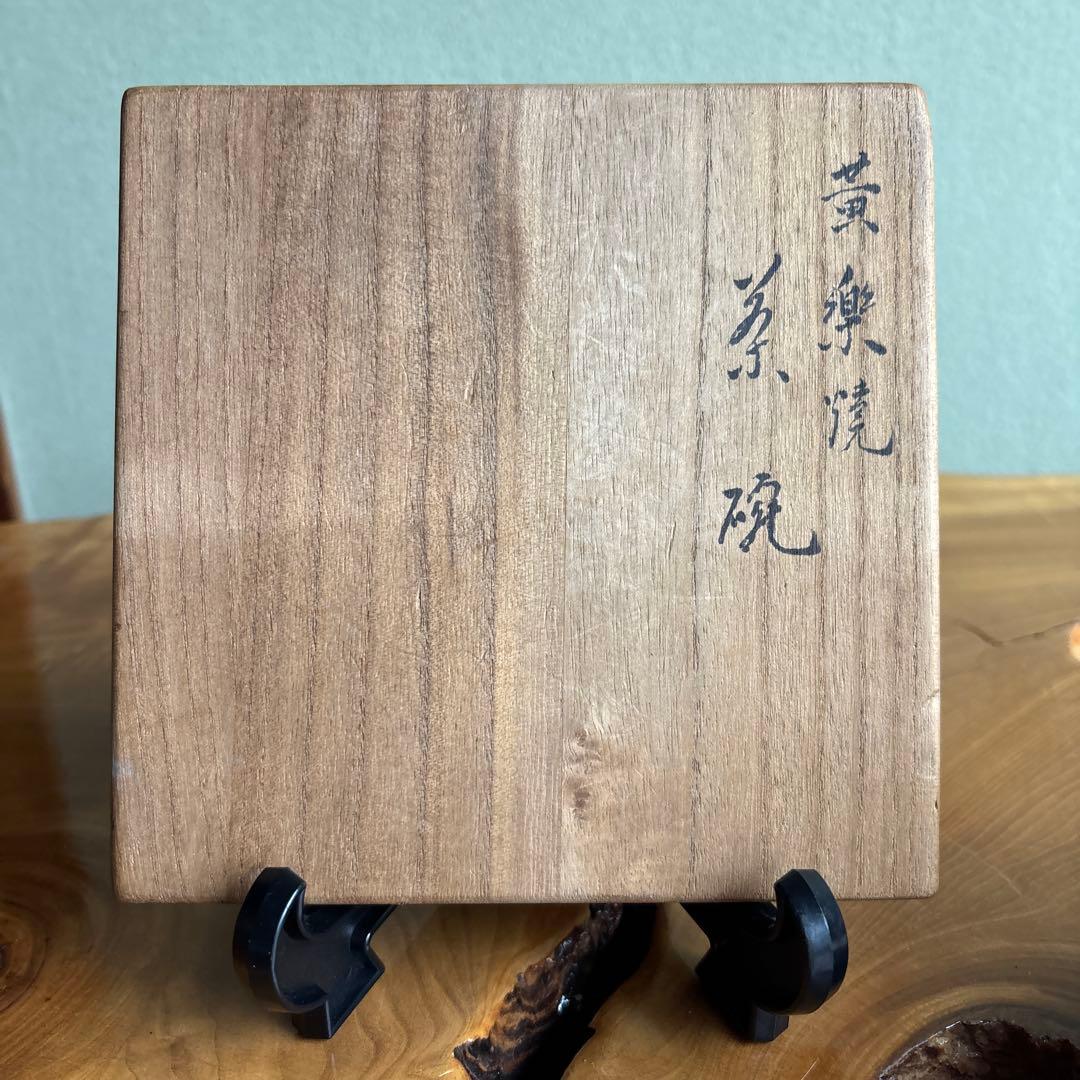 黄樂燒
茶碗